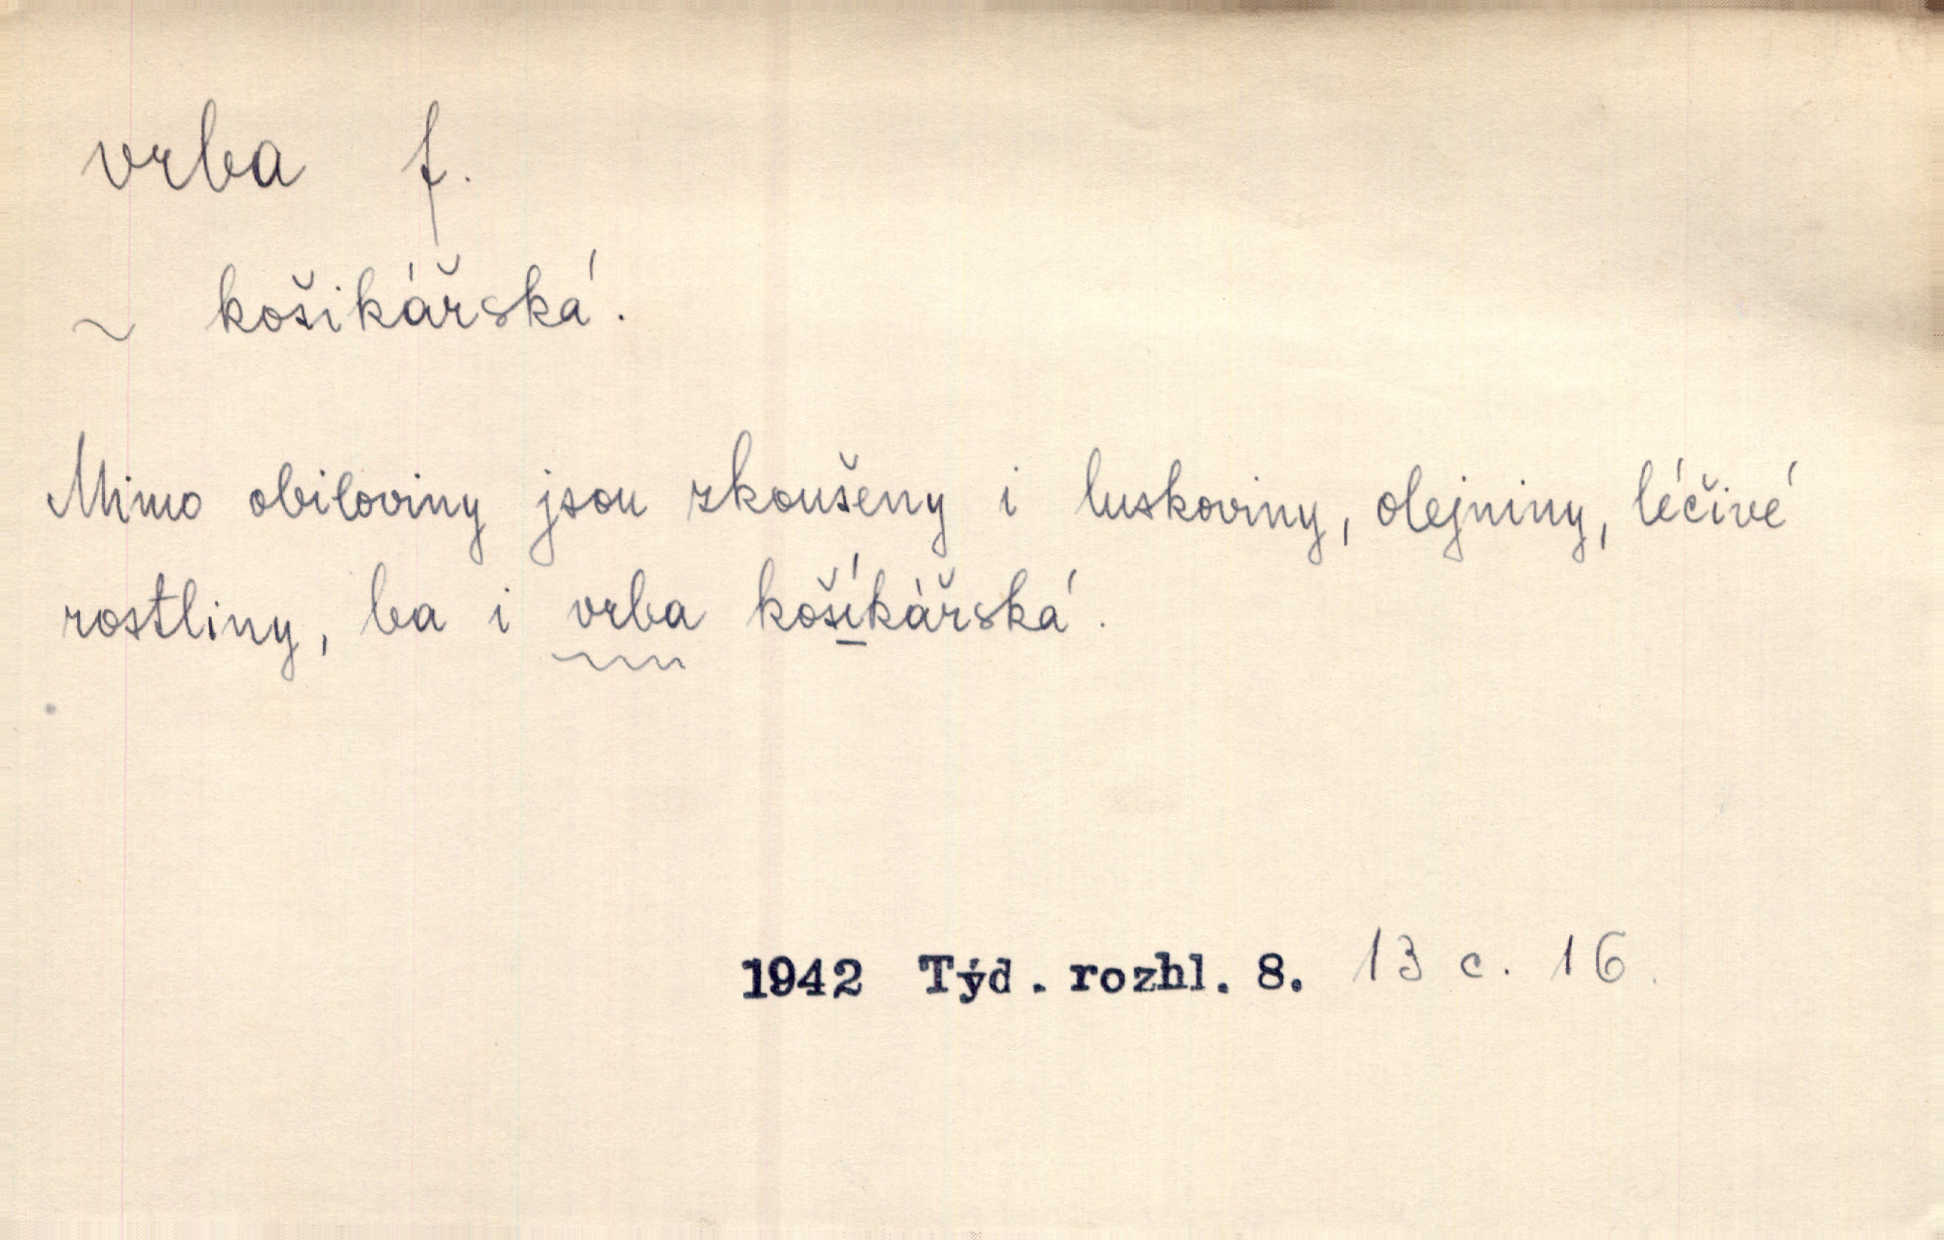 vrba f.
~ košikářská.
Mimo obiloviny jsou zkoušeny i luskoviny, olejniny, léčivé
rostliny, ba i vrba košíkářská.
1942 Týd. rozhl. 8. 13 c. 16.